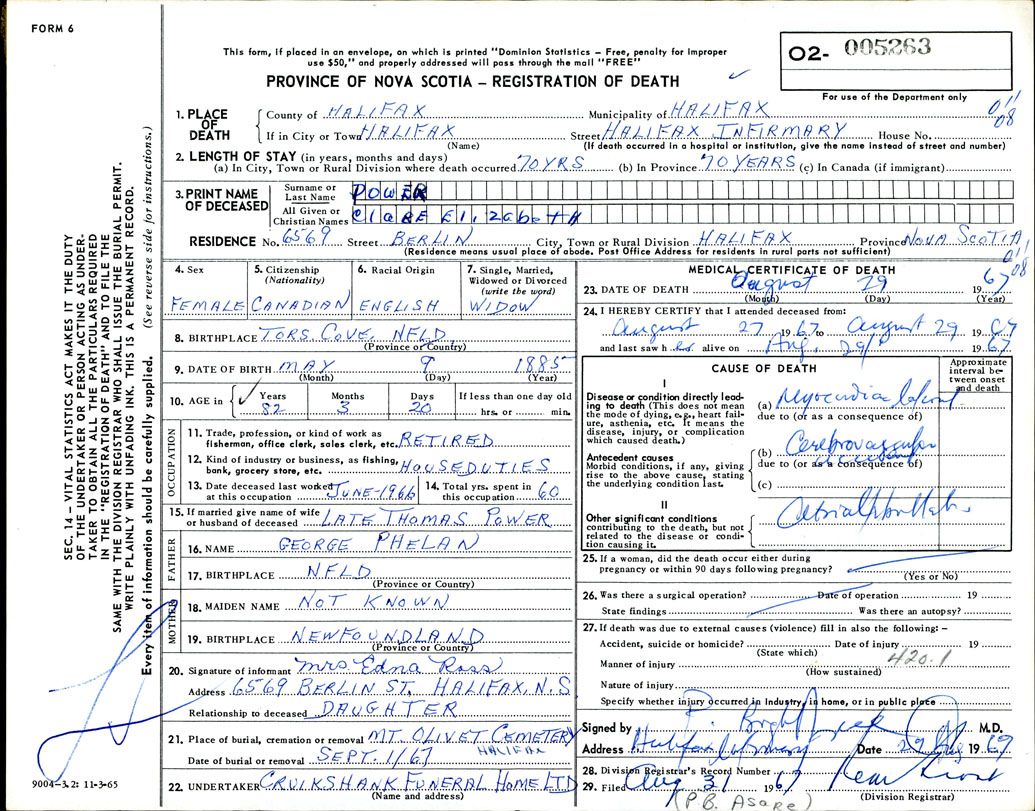 FORM 6
This form, if placed in an envelope, on which is printed "Dominion Statistics – Free, penalty for improper
use $50," and properly addressed will pass through the mail "FREE"
PROVINCE OF NOVA SCOTIA – REGISTRATION OF DEATH
O2- 005263
For use of the Department only
011
08
1. PLACE OF DEATH
County of HALIFAX Municipality of HALIFAX
If in City or Town HALIFAX Street HALIFAX INFIRMARY House No.
(Name) (If death occurred in a hospital or institution, give the name instead of street and number)
2. LENGTH OF STAY (in years, months and days)
(a) In City, Town or Rural Division where death occurred 70 YRS (b) In Province 70 YEARS (c) In Canada (if immigrant)
3. PRINT NAME OF DECEASED
Surname or Last Name POWER
All Given or Christian Names ClaRE ElizabetH
RESIDENCE No. 6569 Street BERLIN City, Town or Rural Division HALIFAX Province NOVA SCOTIA
(Residence means usual place of abode. Post Office Address for residents in rural parts not sufficient)
011
08
4. Sex
FEMALE
5. Citizenship (Nationality)
CANADIAN
6. Racial Origin
ENGLISH
7. Single, Married, Widowed or Divorced (write the word)
WIDOW
8. BIRTHPLACE TORS. COVE, NFLD
(Province or Country)
9. DATE OF BIRTH MAY 9 1885
(Month) (Day) (Year)
10. AGE in Years Months Days If less than one day old
82 3 20 hrs. or min.
OCCUPATION
11. Trade, profession, or kind of work as fisherman, office clerk, sales clerk, etc. RETIRED
12. Kind of industry or business, as fishing, bank, grocery store, etc. HOUSEDUTIES
13. Date deceased last worked at this occupation JUNE-1966
14. Total yrs. spent in this occupation 60
15. If married give name of wife or husband of deceased LATE THOMAS POWER
FATHER
16. NAME GEORGE PHELAN
17. BIRTHPLACE NFLD
(Province or Country)
MOTHER
18. MAIDEN NAME NOT KNOWN
19. BIRTHPLACE NEWFOUNDLAND
(Province or Country)
20. Signature of informant Mrs. Edna Ross
Address 6569 BERLIN ST. HALIFAX, N.S
Relationship to deceased DAUGHTER
21. Place of burial, cremation or removal MT. OLIVET CEMETERY
HALIFAX
Date of burial or removal SEPT. 1/67
22. UNDERTAKER CRUIKSHANK FUNERAL HOME LTD
(Name and address)
MEDICAL CERTIFICATE OF DEATH
23. DATE OF DEATH August 29 1967
(Month) (Day) (Year)
24. I HEREBY CERTIFY that I attended deceased from:
August 27 1967 to August 29 1967
and last saw h er alive on Aug. 29/ 1967
CAUSE OF DEATH
Approximate interval between onset and death
I
Disease or condition directly leading to death (This does not mean the mode of dying, e.g., heart failure, asthenia, etc. It means the disease, injury, or complication which caused death.)
(a) Myocardial Infarct
due to (or as a consequence of)
Antecedent causes
Morbid conditions, if any, giving rise to the above cause, stating the underlying condition last.
(b) Cerebrovascular
due to (or as a consequence of)
(c)
II
Other significant conditions contributing to the death, but not related to the disease or condition causing it.
25. If a woman, did the death occur either during pregnancy or within 90 days following pregnancy?
(Yes or No)
26. Was there a surgical operation? Date of operation 19
State findings Was there an autopsy?
27. If death was due to external causes (violence) fill in also the following: –
Accident, suicide or homicide? Date of injury 19
(State which)
Manner of injury 420.1
(How sustained)
Nature of injury
Specify whether injury occurred in industry, in home, or in public place
Signed by M.D.
Address Halifax Infirmary Date 29 Aug 1967
28. Division Registrar's Record Number
29. Filed Aug 31 1967
(P.B. Asare)
(Division Registrar)
SEC. 14 – VITAL STATISTICS ACT MAKES IT THE DUTY
OF THE UNDERTAKER OR PERSON ACTING AS UNDER-
TAKER TO OBTAIN ALL THE PARTICULARS REQUIRED
IN THE "REGISTRATION OF DEATH" AND TO FILE THE
SAME WITH THE DIVISION REGISTRAR WHO SHALL ISSUE THE BURIAL PERMIT.
WRITE PLAINLY WITH UNFADING INK. THIS IS A PERMANENT RECORD.
Every item of information should be carefully supplied. (See reverse side for instructions.)
9004-3.2: 11-3-65